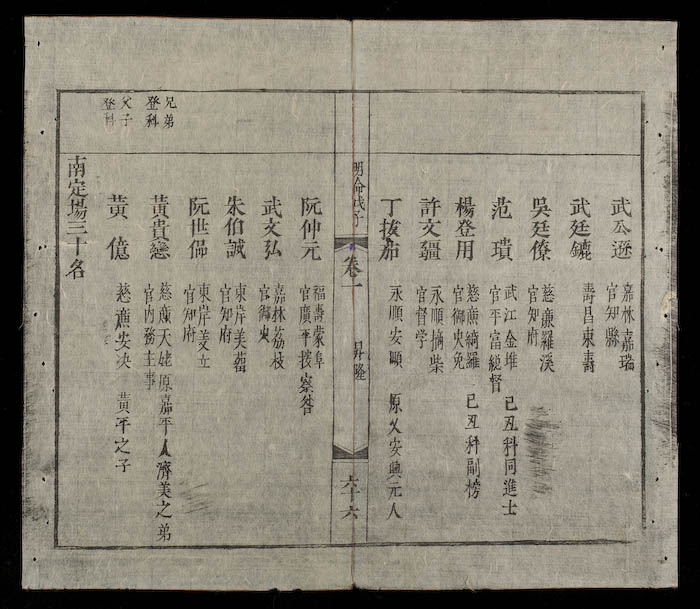 武公遜 嘉林嘉瑞 官知縣
武廷鑣 壽昌東壽
吳廷僚 慈廉羅溪 官知府
范瓆 武江金堆 己丑科同進士 官平富總督
楊登用 慈廉綺羅 己丑科副榜 官御史免
許文疆 永順 柴 官督学
丁拔茹 永順安 原乂安興元人
明命戊子 卷一 昇隆 六十六
阮仲元 福壽蒙阜 官廣平按察
武文弘 嘉林荔枝 官御史
朱伯誠 東岸美蕾 官知府
阮世 東岸姜立 官知府
兄弟登科
黃貴戀 慈廉天姥原嘉平人濟美之弟 官内務主事
父子登科
黃億 慈廉安决 黃平之子
南定場三十名